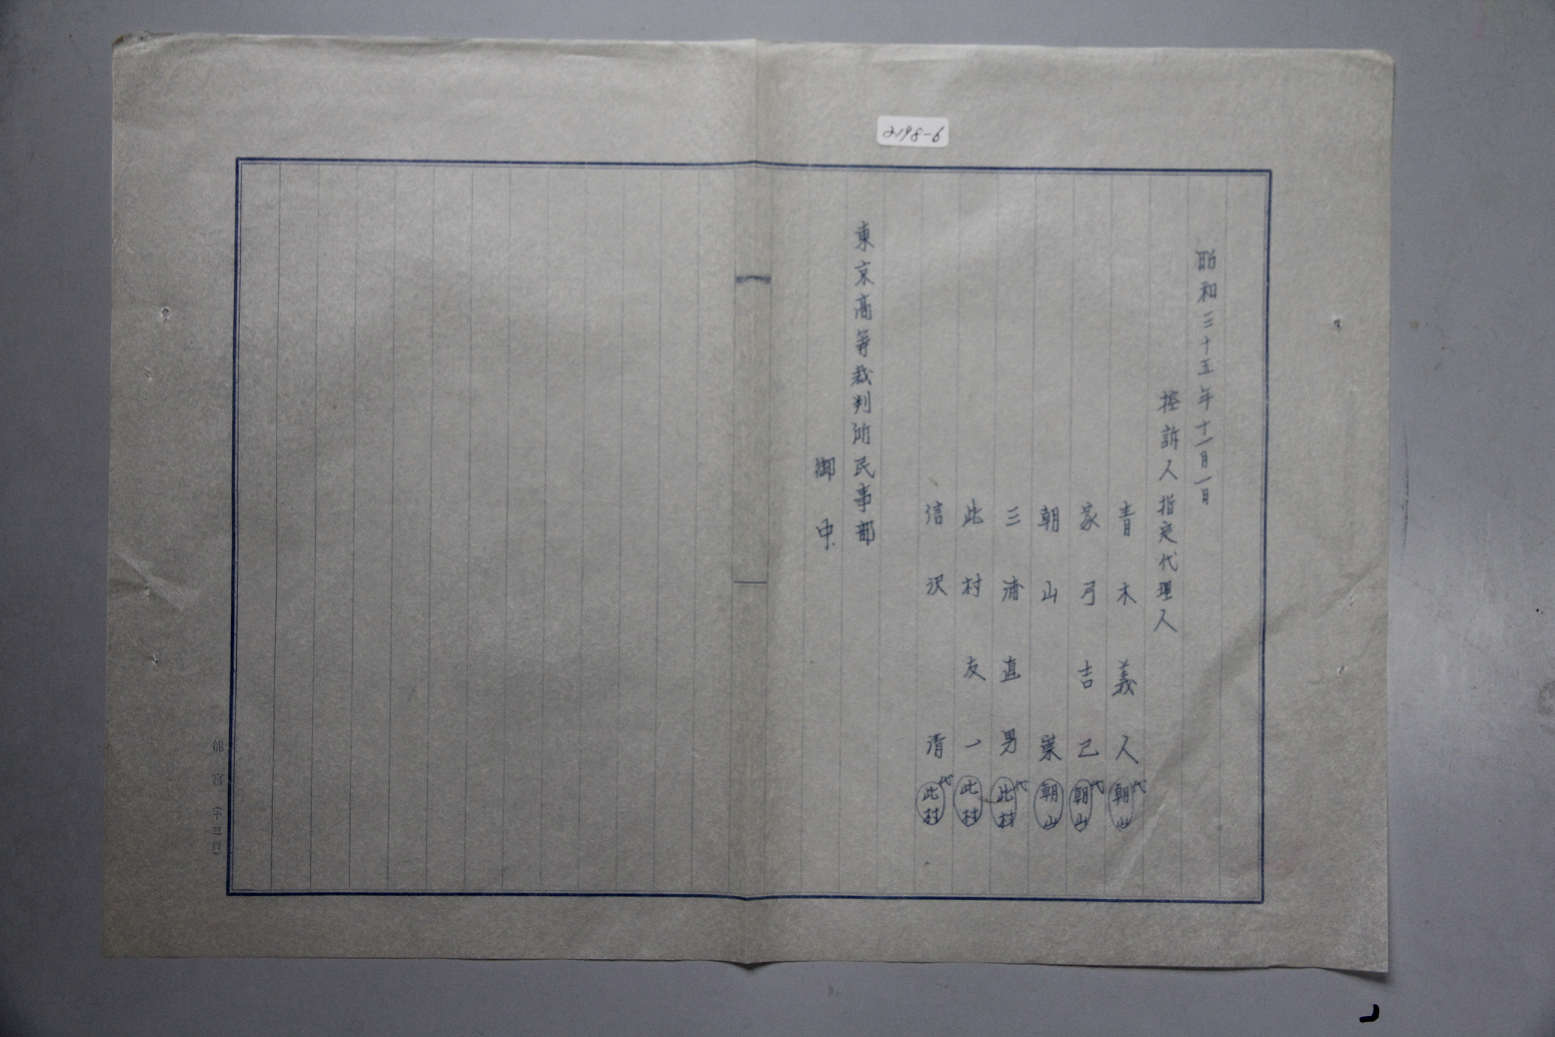 2198-6
昭和三十五年十一月一日
控訴人指定代理人
青木義人 代 朝山
家弓吉己 代 朝山
朝山崇 朝山
三渕直男 代 此村
此村友一 此村
信沢清 代 此村
東京高等裁判所民事部
御中